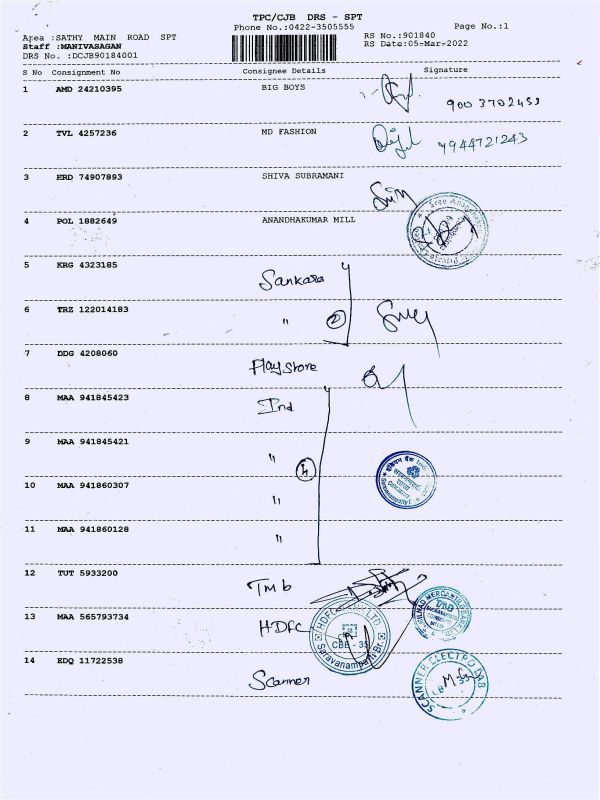 TPC/CJB DRS - SPT
Phone No.:0422-3505555
Page No.:1
Area :SATHY MAIN ROAD SPT
RS No.:901840
Staff :MANIVASAGAN
RS Date:05-Mar-2022
DRS No. :DCJB90184001
S No Consignment No Consignee Details Signature
1 AMD 24210395 BIG BOYS
2 TVL 4257236 MD FASHION 7944721243
3 HRD 74907893 SHIVA SUBRAMANI
4 POL 1882649 ANANDHAKUMAR MILL
5 KRG 4323185 Sankara
6 TRZ 122014183 " 2
7 DDG 4208060 Playstore
8 MAA 941845423 Ind
9 MAA 941845421 " 4
10 MAA 941860307 "
11 MAA 941860128 "
12 TUT 5933200 Tmb
13 MAA 565793734 HDFC
HDFC LTD
CBE - 35
Saravanampatti Br.
14 EDQ 11722538 Scanner
SCANNER ELECTRO LAB